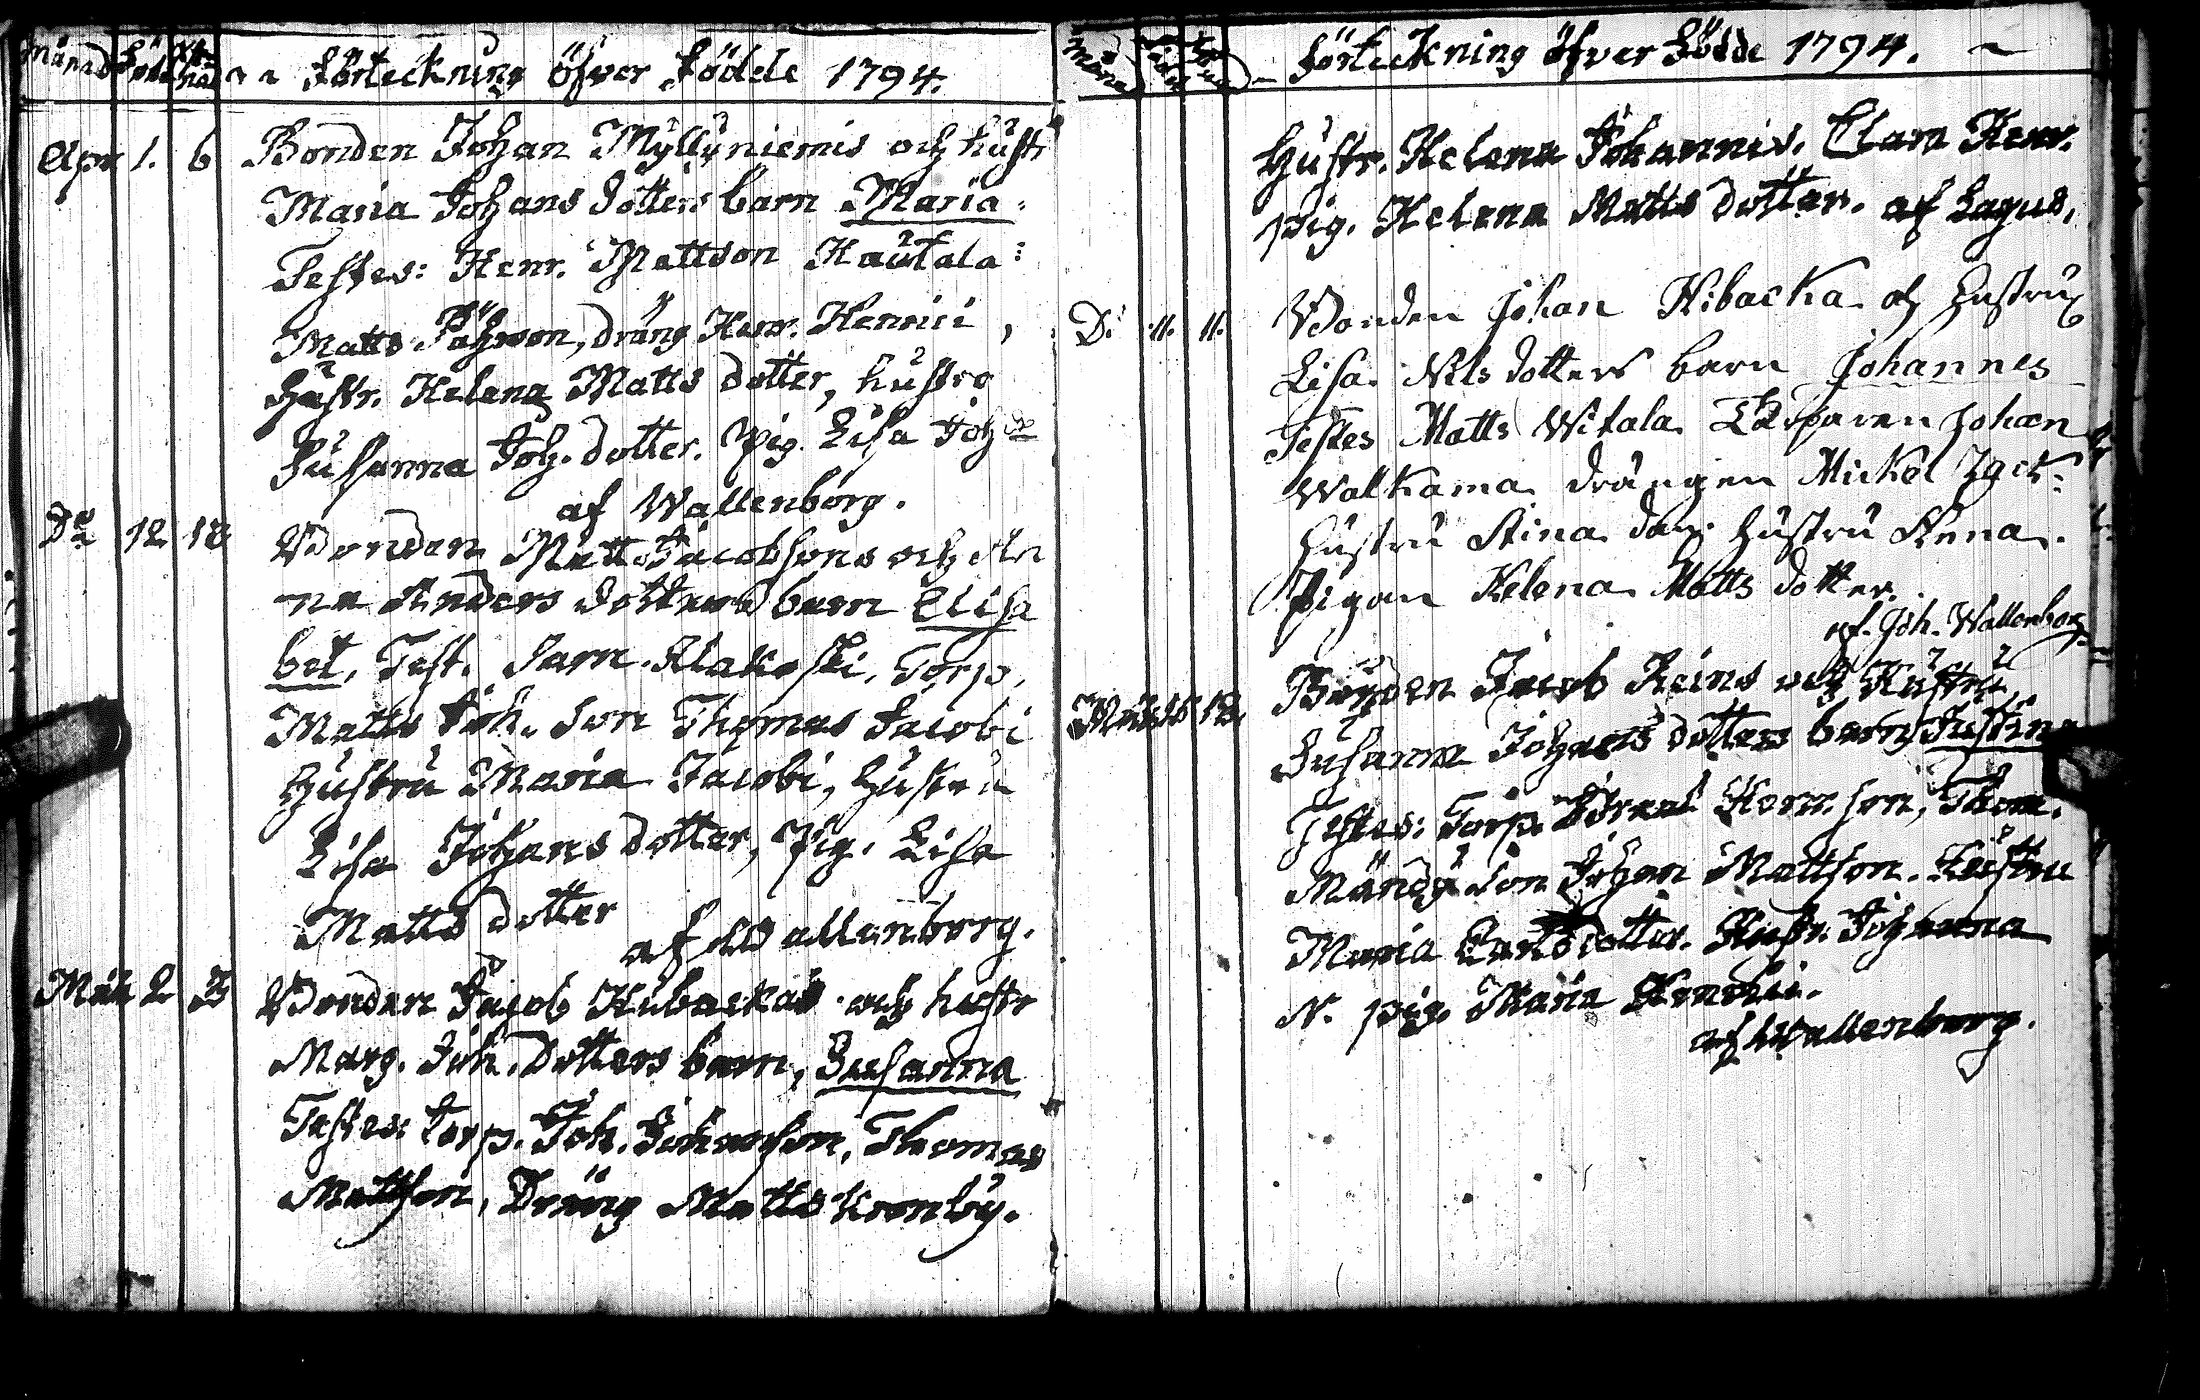 Månad Föde Xtnad Förteckning öfver Födde 1794.
Apr 1. 6 Bonden Johan Myllyniemis och hustr
Maria Johans dotters barn Maria.
Testes: Henr. Mattson Hautala:
Matts Påhson, dräng Henr. Henrici,
Hustr. Helena Matts dotter, hustro
Susanna Joh. dotter. Pig. Lisa Joh
af Wallenborg.
Do 12 18 Bonden Matts Jacobsons och An
na Anders dotters barn Elisa
bet, Test. Torp.
Matts Joh. Son Thomas Jacobi
Hustru Maria Jacobi, Hustru
Lisa Johans dotter, Pig. Lisa
Matts dotter af Wallenborg.
Maii 2 3 Bonden Jacob Hibackas och hustr
Marg. Joh. dotters barn, Susanna
Testes: torp. Joh. Johanson, Thomas
Mattson, Dräng Matts Kronby.
Månad Födde Förteckning öfver Födde 1794.
Hustr. Helena Johannis. Clara Henr.
pig. Helena Matts dotter. af Lagus.
D: 11. 11. Bonden Johan Hibacka och Hustrux
Lisa Nils dotters barn Johannes
Testes Matts Witala Torparen Johan
Walkama drängen Mickel Zack:
Hustru Stina Hustru Anna.
Pigan Helena Matts dotter.
af Joh. Wallenborg
Maii 15 18. Bonden Jacob Heins och Hustru
Susanna Johans dotters barn Justina
Testes: Torp. Henr. son, Thom.
Son Johan Mattson. Hustru
Maria Carls dotter. Hustr. Johanna
N. pig. Maria Henrici.
af Wallenborg.